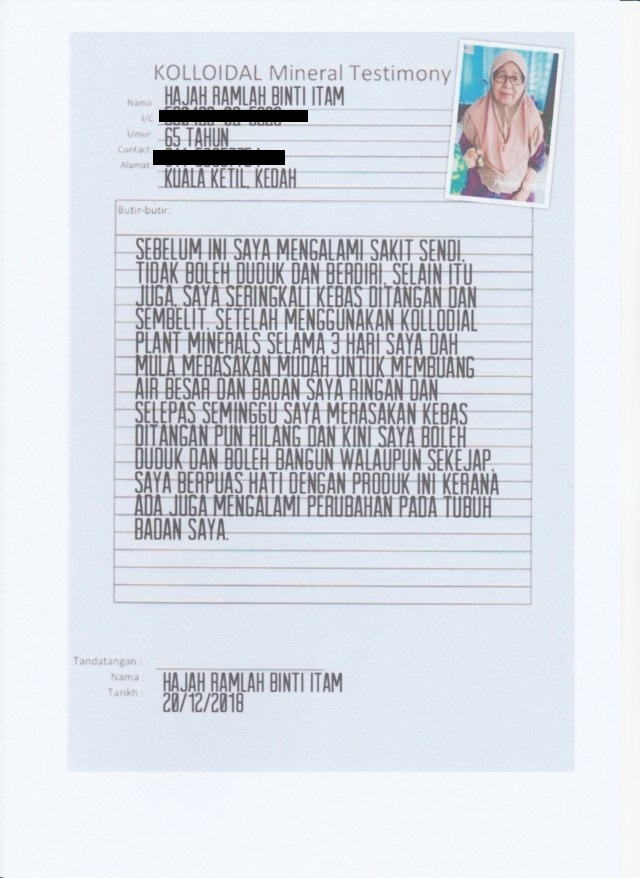 KOLLOIDAL Mineral Testimony
Nama : HAJAH RAMLAH BINTI ITAM
I/C :
Umur : 65 TAHUN
Contact :
Alamat : KUALA KETIL, KEDAH
Butir-butir:
SEBELUM INI SAYA MENGALAMI SAKIT SENDI,
TIDAK BOLEH DUDUK DAN BERDIRI, SELAIN ITU
JUGA, SAYA SERINGKALI KEBAS DITANGAN DAN
SEMBELIT. SETELAH MENGGUNAKAN KOLLODIAL
PLANT MINERALS SELAMA 3 HARI SAYA DAH
MULA MERASAKAN MUDAH UNTUK MEMBUANG
AIR BESAR DAN BADAN SAYA RINGAN DAN
SELEPAS SEMINGGU SAYA MERASAKAN KEBAS
DITANGAN PUN HILANG DAN KINI SAYA BOLEH
DUDUK DAN BOLEH BANGUN WALAUPUN SEKEJAP.
SAYA BERPUAS HATI DENGAN PRODUK INI KERANA
ADA JUGA MENGALAMI PERUBAHAN PADA TUBUH
BADAN SAYA.
Tandatangan :
Nama : HAJAH RAMLAH BINTI ITAM
Tarikh : 20/12/2018